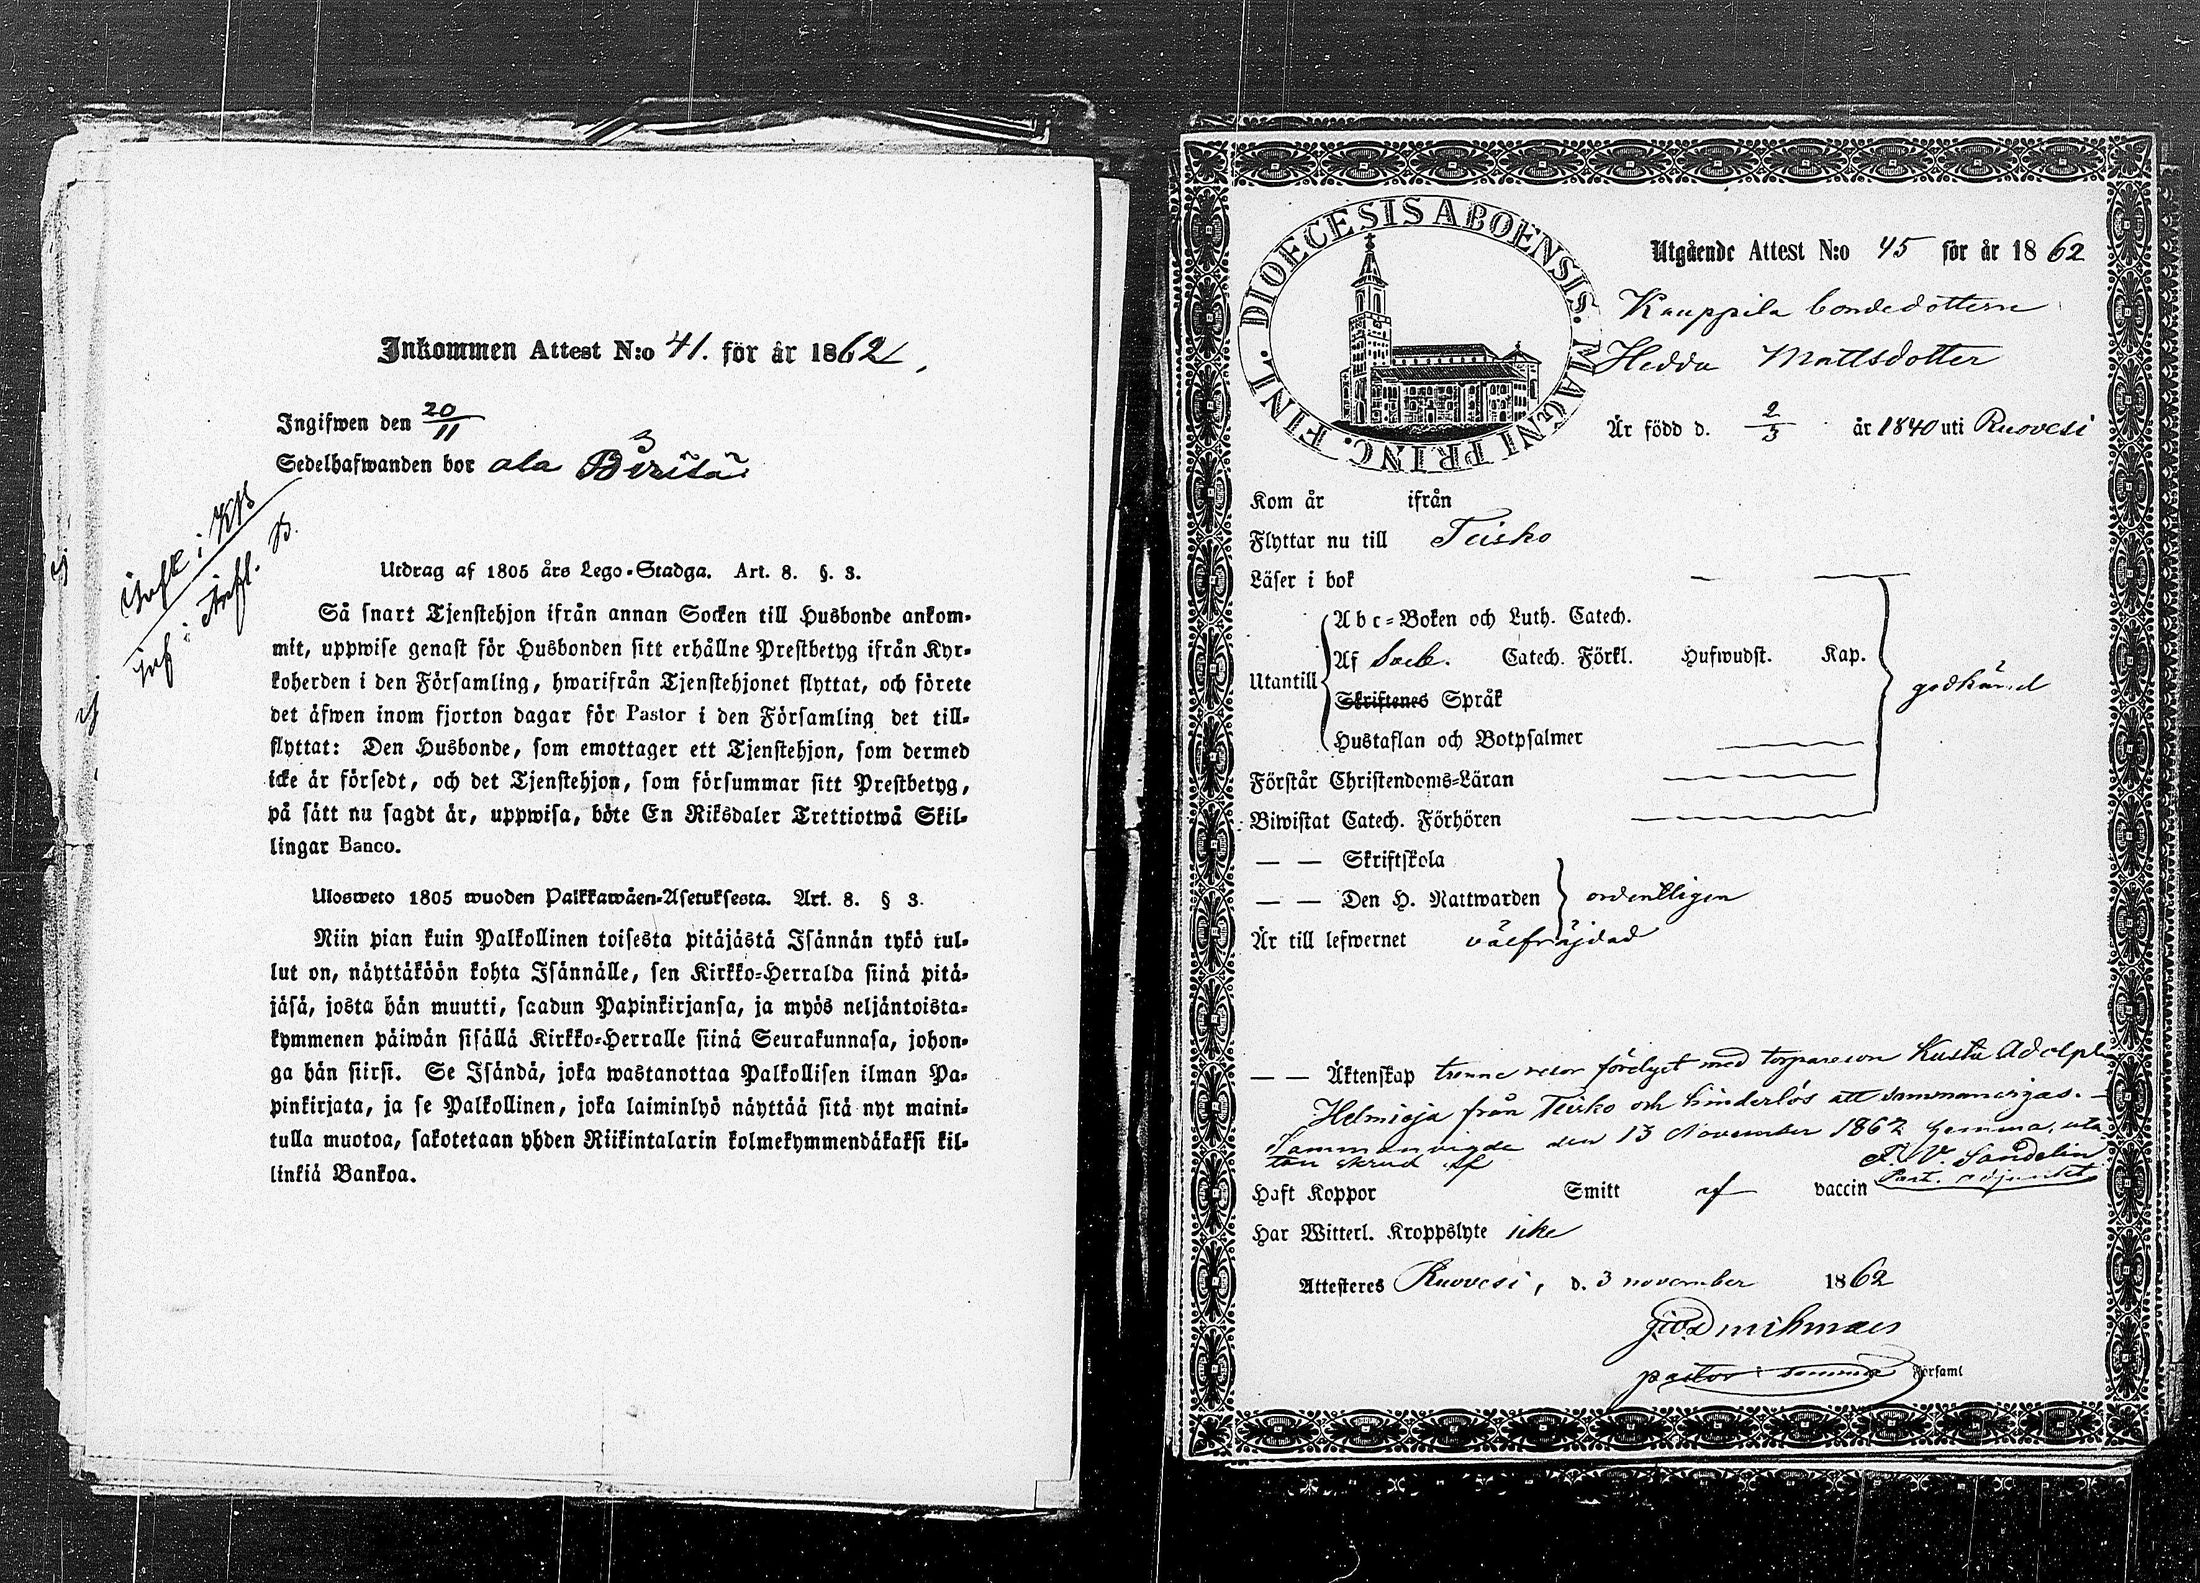 Inkommen Attest N:o 41. för år 1862.
Ingifwen den 20/11
Sedelhafwanden bor ala
Utdrag af 1805 års Lego-Stadga. Art. 8. §. 3.
Så snart Tjenstehjon ifrån annan Socken till Husbonde ankom-
mit, uppwise genast för Husbonden sitt erhållne Prestbetyg ifrån Kyr-
koherden i den Församling, hwarifrån Tjenstehjonet flyttat, och förete
det äfwen inom fjorton dagar för Pastor i den Församling det till-
flyttat: Den Husbonde, som emottager ett Tjenstehjon, som dermed
icke är försedt, och det Tjenstehjon, som försummar sitt Prestbetyg,
på sätt nu sagdt är, uppwisa, böte En Riksdaler Trettiotwå Skil-
lingar Banco.
Ulosweto 1805 wuoden Palkkawäen-Asetuksesta. Art. 8. § 3.
Niin pian kuin Palkollinen toisesta pitäjästä Isännän tykö tul-
lut on, näyttäköön kohta Isännälle, sen Kirkko-Herralda siinä pitä-
jäsä, josta hän muutti, saadun Papinkirjansa, ja myös neljäntoista-
kymmenen päiwän sisällä Kirkko-Herralle siinä Seurakunnasa, johon-
ga hän siirsi. Se Isändä, joka wastanottaa Palkollisen ilman Pa-
pinkirjata, ja se Palkollinen, joka laiminlyö näyttää sitä nyt maini-
tulla muotoa, sakotetaan yhden Riikintalarin kolmekymmendäkaksi kil-
linkiä Bankoa.
DIOECESIS ABOENSIS. MAGNI PRINC. FINL.
Utgående Attest N:o 45 för år 1862
Kauppila bondedottern
Hedda Mattsdotter
Är född d. 2/3 år 1840 uti Ruovesi
Kom år ifrån
Flyttar nu till Teisko
Läser i bok
Abc-Boken och Luth. Catech.
Utantill
Af Catech. Förkl. Hufwudst. Kap.
Skriftenes Språk
Hustaflan och Botpsalmer
godkänd
Förstår Christendoms-Läran
Biwistat Catech. Förhören
— — Skriftskola
— — Den H. Nattwarden ordentligen
Är till lefwernet välfräjdad
— — Äktenskap trenne resor förelyst med torparesonen Kustu Adolph
Helmioja från Teisko och hinderlös att sammanvigas. —
Sammanvigde den 13 November 1862 hemma, uta
tan skrud af F. V. Sandelin
Past. adjunkt
Haft Koppor Smitt af vaccin
Har Witterl. Kroppslyte icke
Attesteres Ruovesi, d. 3 november 1862
pastor i samma Församl